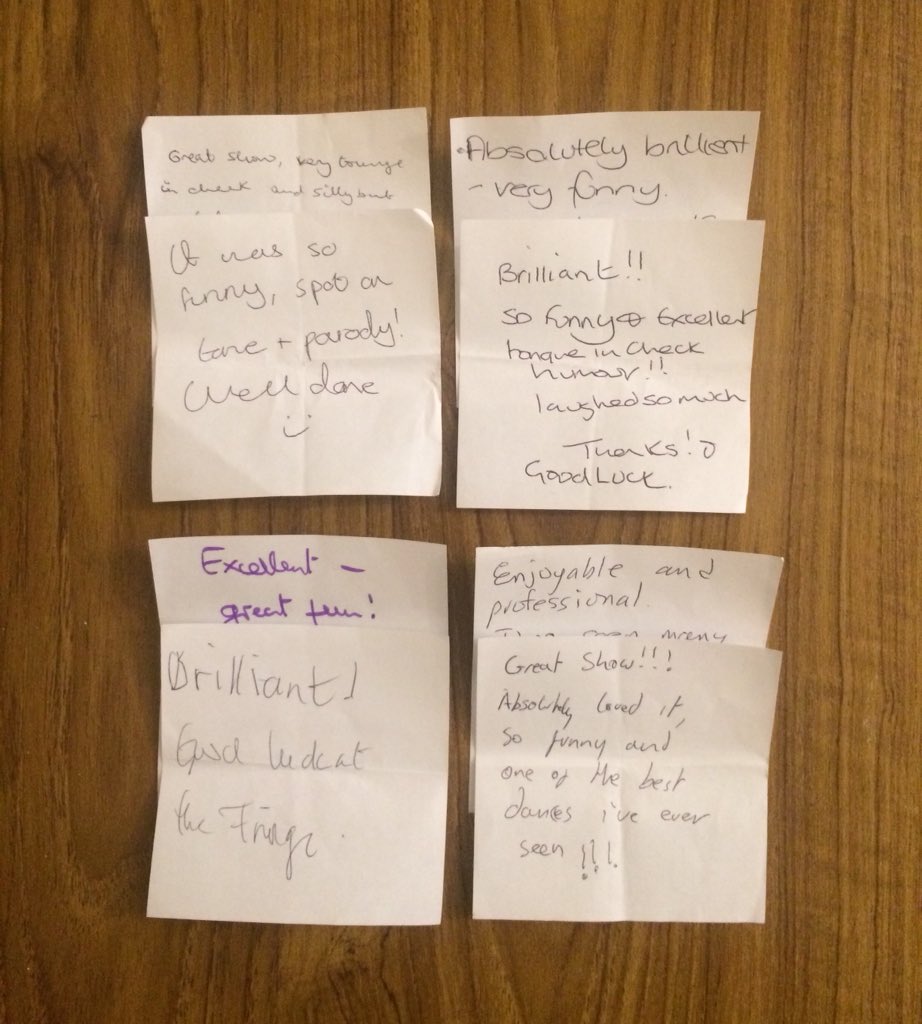 Great show, very tounge
in cheek and silly but
It was so
funny, spot on
tone + parody!
Well done
Absolutely brillient
- very funny.
Brilliant!!
So funny Excellent
tongue in Cheek
humour!!
laughed so much
Thanks!
Good Luck.
Excellent -
great fun!
Brilliant!
Good luck at
the Fringe.
Enjoyable and
professional.
Great Show!!!
Absolutely loved it,
so funny and
one of the best
dances i've ever
seen !!!